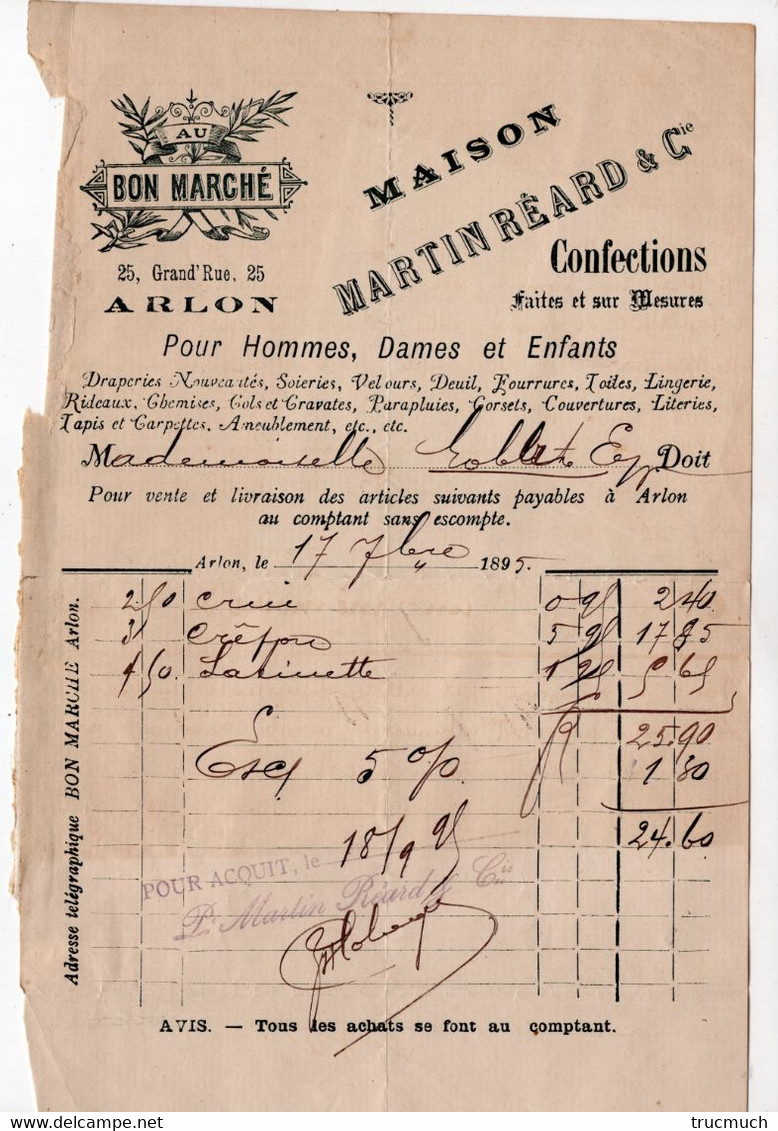 AU
BON MARCHÉ
25, Grand'Rue, 25
ARLON
MAISON
MARTIN RÉARD & Cie
Confections
Faites et sur Mesures
Pour Hommes, Dames et Enfants
Draperies Nouveautés, Soieries, Velours, Deuil, Fourrures, Toiles, Lingerie,
Rideaux, Chemises, Cols et Cravates, Parapluies, Corsets, Couvertures, Literies,
Tapis et Carpettes, Ameublement, etc., etc.
Mademoiselle Doit
Pour vente et livraison des articles suivants payables à Arlon
au comptant sans escompte.
Arlon, le 17 7bre 1895.
2 50 0 95 2 40
3 5 95 17 85
4 50 Satinette 1 25 5 65
25.90
Esc 5 o/o 1 30
24.60
18/9 95
POUR ACQUIT, le
Pr Martin Réard & Cie
Adresse télégraphique BON MARCHE Arlon.
AVIS. — Tous les achats se font au comptant.
delcampe.net
trucmuch